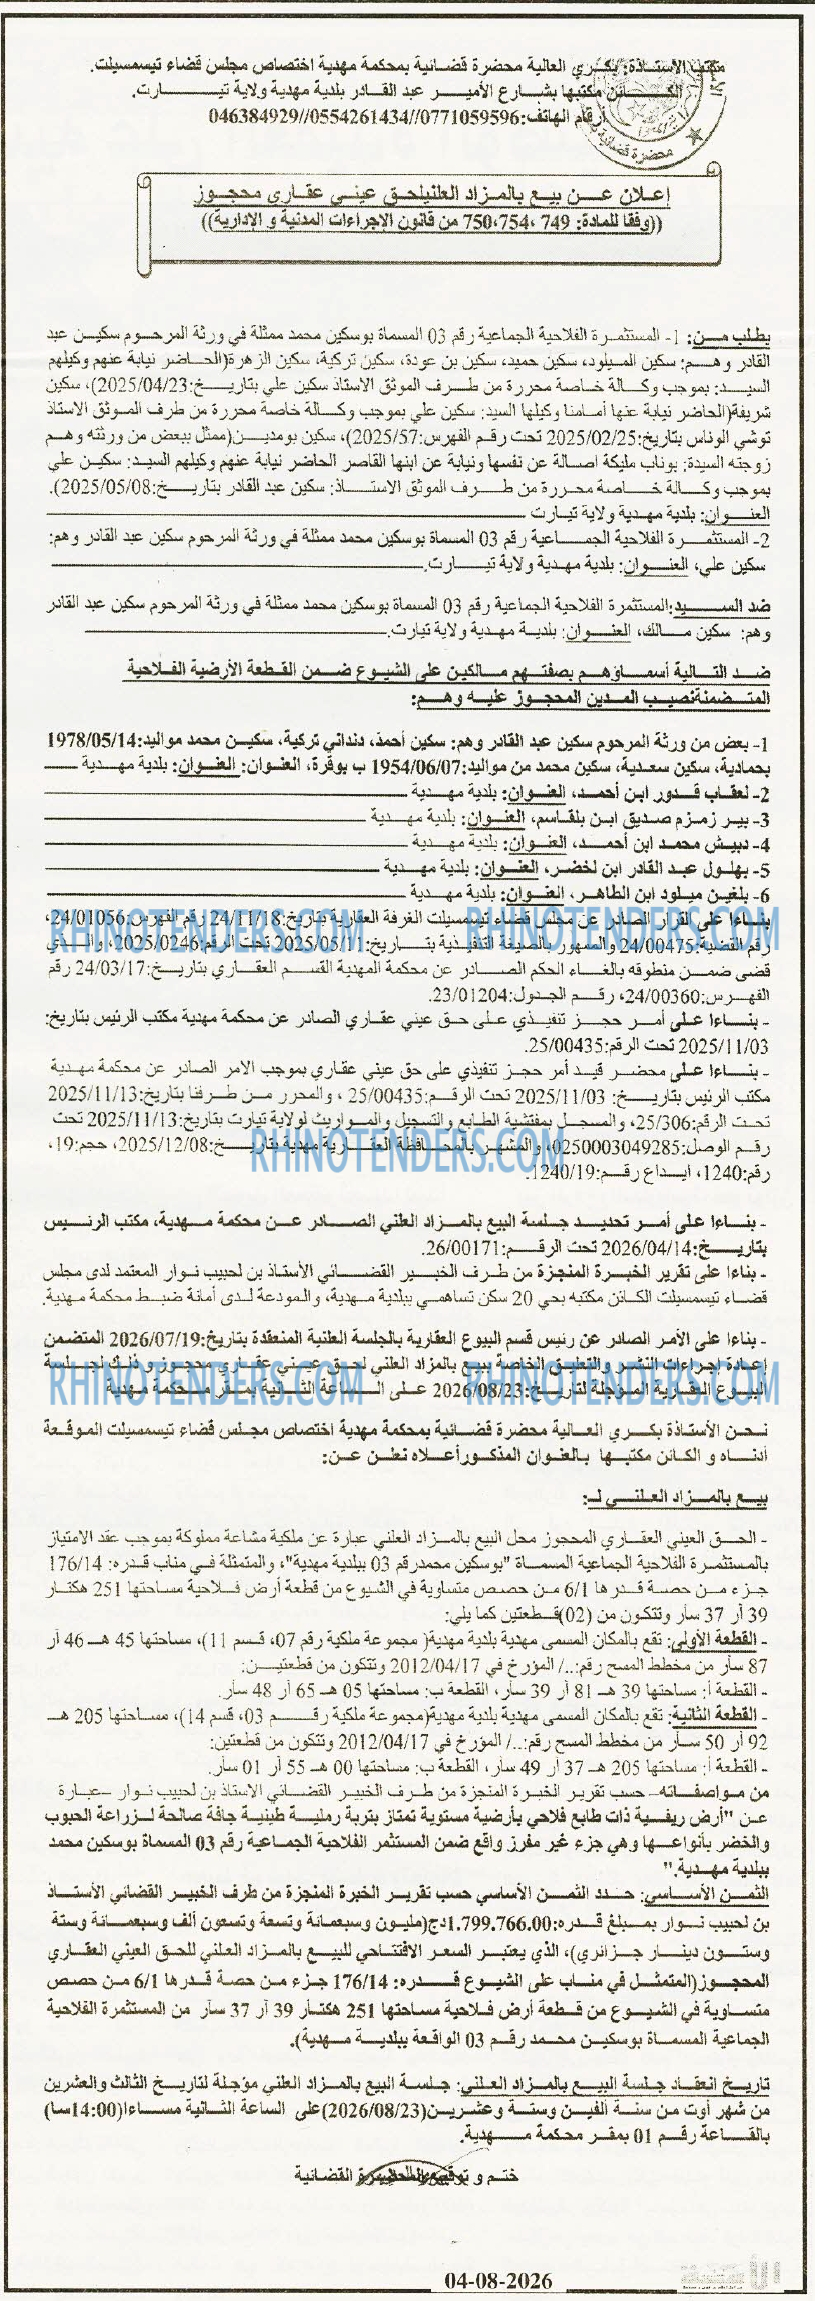 مكتب الأستاذة: بكري العالية محضرة قضائية بمحكمة مهدية اختصاص مجلس قضاء تيسمسيلت.
الكائن مكتبها بشارع الأمير عبد القادر بلدية مهدية ولاية تيارت.
أرقام الهاتف:0771059596//0554261434//046384929
محضرة قضائية
إعلان عن بيع بالمزاد العلنيلحق عيني عقاري محجوز
((وفقا للمادة: 749 ،750،754 من قانون الاجراءات المدنية و الإدارية))
بطلب من: 1- المستثمرة الفلاحية الجماعية رقم 03 المسماة بوسكين محمد ممثلة في ورثة المرحوم سكين عبد
القادر وهم: سكين الميلود، سكين حميد، سكين بن عودة، سكين تركية، سكين الزهرة(الحاضر نيابة عنهم وكيلهم
السيد: بموجب وكالة خاصة محررة من طرف الموثق الاستاذ سكين علي بتاريخ:2025/04/23)، سكين
شريفة(الحاضر نيابة عنها أمامنا وكيلها السيد: سكين علي بموجب وكالة خاصة محررة من طرف الموثق الاستاذ
توشي الوناس بتاريخ:2025/02/25 تحت رقم الفهرس:2025/57)، سكين بومدين(ممثل ببعض من ورثته وهم
زوجته السيدة: بوناب مليكة اصالة عن نفسها ونيابة عن ابنها القاصر الحاضر نيابة عنهم وكيلهم السيد: سكين علي
بموجب وكالة خاصة محررة من طرف الموثق الاستاذ: سكين عبد القادر بتاريخ:2025/05/08).
العنوان: بلدية مهدية ولاية تيارت
2- المستثمرة الفلاحية الجماعية رقم 03 المسماة بوسكين محمد ممثلة في ورثة المرحوم سكين عبد القادر وهم:
سكين علي، العنوان: بلدية مهدية ولاية تيارت.
ضد السيد:المستثمرة الفلاحية الجماعية رقم 03 المسماة بوسكين محمد ممثلة في ورثة المرحوم سكين عبد القادر
وهم: سكين مالك، العنوان: بلدية مهدية ولاية تيارت.
ضد التالية أسماؤهم بصفتهم مالكين على الشيوع ضمن القطعة الأرضية الفلاحية
المتضمنةنصيب المدين المحجوز عليه وهم:
1- بعض من ورثة المرحوم سكين عبد القادر وهم: سكين أحمد، دنداني تركية، سكين محمد مواليد:1978/05/14
بحمادية، سكين سعدية، سكين محمد من مواليد:1954/06/07 ب بوقرة، العنوان: العنوان: بلدية مهدية
2- لعقاب قدور ابن أحمد، العنوان: بلدية مهدية
3- بير زمزم صديق ابن بلقاسم، العنوان: بلدية مهدية
4- دبيش محمد ابن أحمد، العنوان: بلدية مهدية
5- بهلول عبد القادر ابن لخضر، العنوان: بلدية مهدية
6- بلغين ميلود ابن الطاهر، العنوان: بلدية مهدية
بناءا على القرار الصادر عن مجلس قضاء تيسمسيلت الغرفة العقارية بتاريخ:24/11/18 رقم الفهرس:24/01056،
رقم القضية:24/00475 والممهور بالصيغة التنفيذية بتاريخ:2025/05/11 تحت الرقم:2025/0246، والذي
قضى ضمن منطوقه بالغاء الحكم الصادر عن محكمة المهدية القسم العقاري بتاريخ:24/03/17 رقم
الفهرس:24/00360، رقم الجدول:23/01204.
- بناءا على أمر حجز تنفيذي على حق عيني عقاري الصادر عن محكمة مهدية مكتب الرئيس بتاريخ:
2025/11/03 تحت الرقم:25/00435.
- بناءا على محضر قيد أمر حجز تنفيذي على حق عيني عقاري بموجب الامر الصادر عن محكمة مهدية
مكتب الرئيس بتاريخ: 2025/11/03 تحت الرقم:25/00435 ، والمحرر من طرفنا بتاريخ:2025/11/13
تحت الرقم:25/306، والمسجل بمفتشية الطابع والتسجيل والمواريث لولاية تيارت بتاريخ:2025/11/13 تحت
رقم الوصل:0250003049285، والمشهر بالمحافظة العقارية مهدية بتاريخ:2025/12/08، حجم:19،
رقم:1240، ايداع رقم:1240/19.
- بناءا على أمر تحديد جلسة البيع بالمزاد العلني الصادر عن محكمة مهدية، مكتب الرئيس
بتاريخ:2026/04/14 تحت الرقم:26/00171.
- بناءا على تقرير الخبرة المنجزة من طرف الخبير القضائي الأستاذ بن لحبيب نوار المعتمد لدى مجلس
قضاء تيسمسيلت الكائن مكتبه بحي 20 سكن تساهمي ببلدية مهدية، والمودعة لدى أمانة ضبط محكمة مهدية.
- بناءا على الأمر الصادر عن رئيس قسم البيوع العقارية بالجلسة العلنية المنعقدة بتاريخ:2026/07/19 المتضمن
إعادة إجراءات النشر والتعليق الخاصة ببيع بالمزاد العلني لحق عيني عقاري محجوز وذلك لجلسة
البيوع العقارية المؤجلة لتاريخ:2026/08/23 على الساعة الثانية بمقر محكمة مهدية
نحن الأستاذة بكري العالية محضرة قضائية بمحكمة مهدية اختصاص مجلس قضاء تيسمسيلت الموقعة
أدناه و الكائن مكتبها بالعنوان المذكورأعلاه نعلن عن:
بيع بالمزاد العلني لـ:
- الحق العيني العقاري المحجوز محل البيع بالمزاد العلني عبارة عن ملكية مشاعة مملوكة بموجب عقد الامتياز
بالمستثمرة الفلاحية الجماعية المسماة "بوسكين محمدرقم 03 ببلدية مهدية"، والمتمثلة في مناب قدره: 176/14
جزء من حصة قدرها 6/1 من حصص متساوية في الشيوع من قطعة أرض فلاحية مساحتها 251 هكتار
39 آر 37 سآر وتتكون من (02)قطعتين كما يلي:
- القطعة الأولى: تقع بالمكان المسمى مهدية بلدية مهدية( مجموعة ملكية رقم 07، قسم 11)، مساحتها 45 هـ 46 آر
87 سآر من مخطط المسح رقم:../ المؤرخ في 2012/04/17 وتتكون من قطعتين:
- القطعة أ: مساحتها 39 هـ 81 آر 39 سآر، القطعة ب: مساحتها 05 هـ 65 آر 48 سآر.
- القطعة الثانية: تقع بالمكان المسمى مهدية بلدية مهدية(مجموعة ملكية رقم 03، قسم 14)، مساحتها 205 هـ
92 آر 50 سآر من مخطط المسح رقم:../ المؤرخ في 2012/04/17 وتتكون من قطعتين:
- القطعة أ: مساحتها 205 هـ 37 آر 49 سآر، القطعة ب: مساحتها 00 هـ 55 آر 01 سآر.
من مواصفاته- حسب تقرير الخبرة المنجزة من طرف الخبير القضائي الاستاذ بن لحبيب نوار -عبارة
عن "أرض ريفية ذات طابع فلاحي بأرضية مستوية تمتاز بتربة رملية طينية جافة صالحة لزراعة الحبوب
والخضر بأنواعها وهي جزء غير مفرز واقع ضمن المستثمر الفلاحية الجماعية رقم 03 المسماة بوسكين محمد
ببلدية مهدية."
الثمن الأساسي: حدد الثمن الأساسي حسب تقرير الخبرة المنجزة من طرف الخبير القضائي الأستاذ
بن لحبيب نوار بمبلغ قدره:1.799.766.00دج(مليون وسبعمائة وتسعة وتسعون ألف وسبعمائة وستة
وستون دينار جزائري)، الذي يعتبر السعر الافتتاحي للبيع بالمزاد العلني للحق العيني العقاري
المحجوز(المتمثل في مناب على الشيوع قدره: 176/14 جزء من حصة قدرها 6/1 من حصص
متساوية في الشيوع من قطعة أرض فلاحية مساحتها 251 هكتار 39 آر 37 سآر من المستثمرة الفلاحية
الجماعية المسماة بوسكين محمد رقم 03 الواقعة ببلدية مهدية).
تاريخ انعقاد جلسة البيع بالمزاد العلني: جلسة البيع بالمزاد العلني مؤجلة لتاريخ الثالث والعشرين
من شهر أوت من سنة ألفين وستة وعشرين(2026/08/23)على الساعة الثانية مساءا(14:00سا)
بالقاعة رقم 01 بمقر محكمة مهدية.
ختم و توقيع المحضرة القضائية
RHINOTENDERS.COM
RHINOTENDERS.COM
RHINOTENDERS.COM
RHINOTENDERS.COM
RHINOTENDERS.COM
04-08-2026